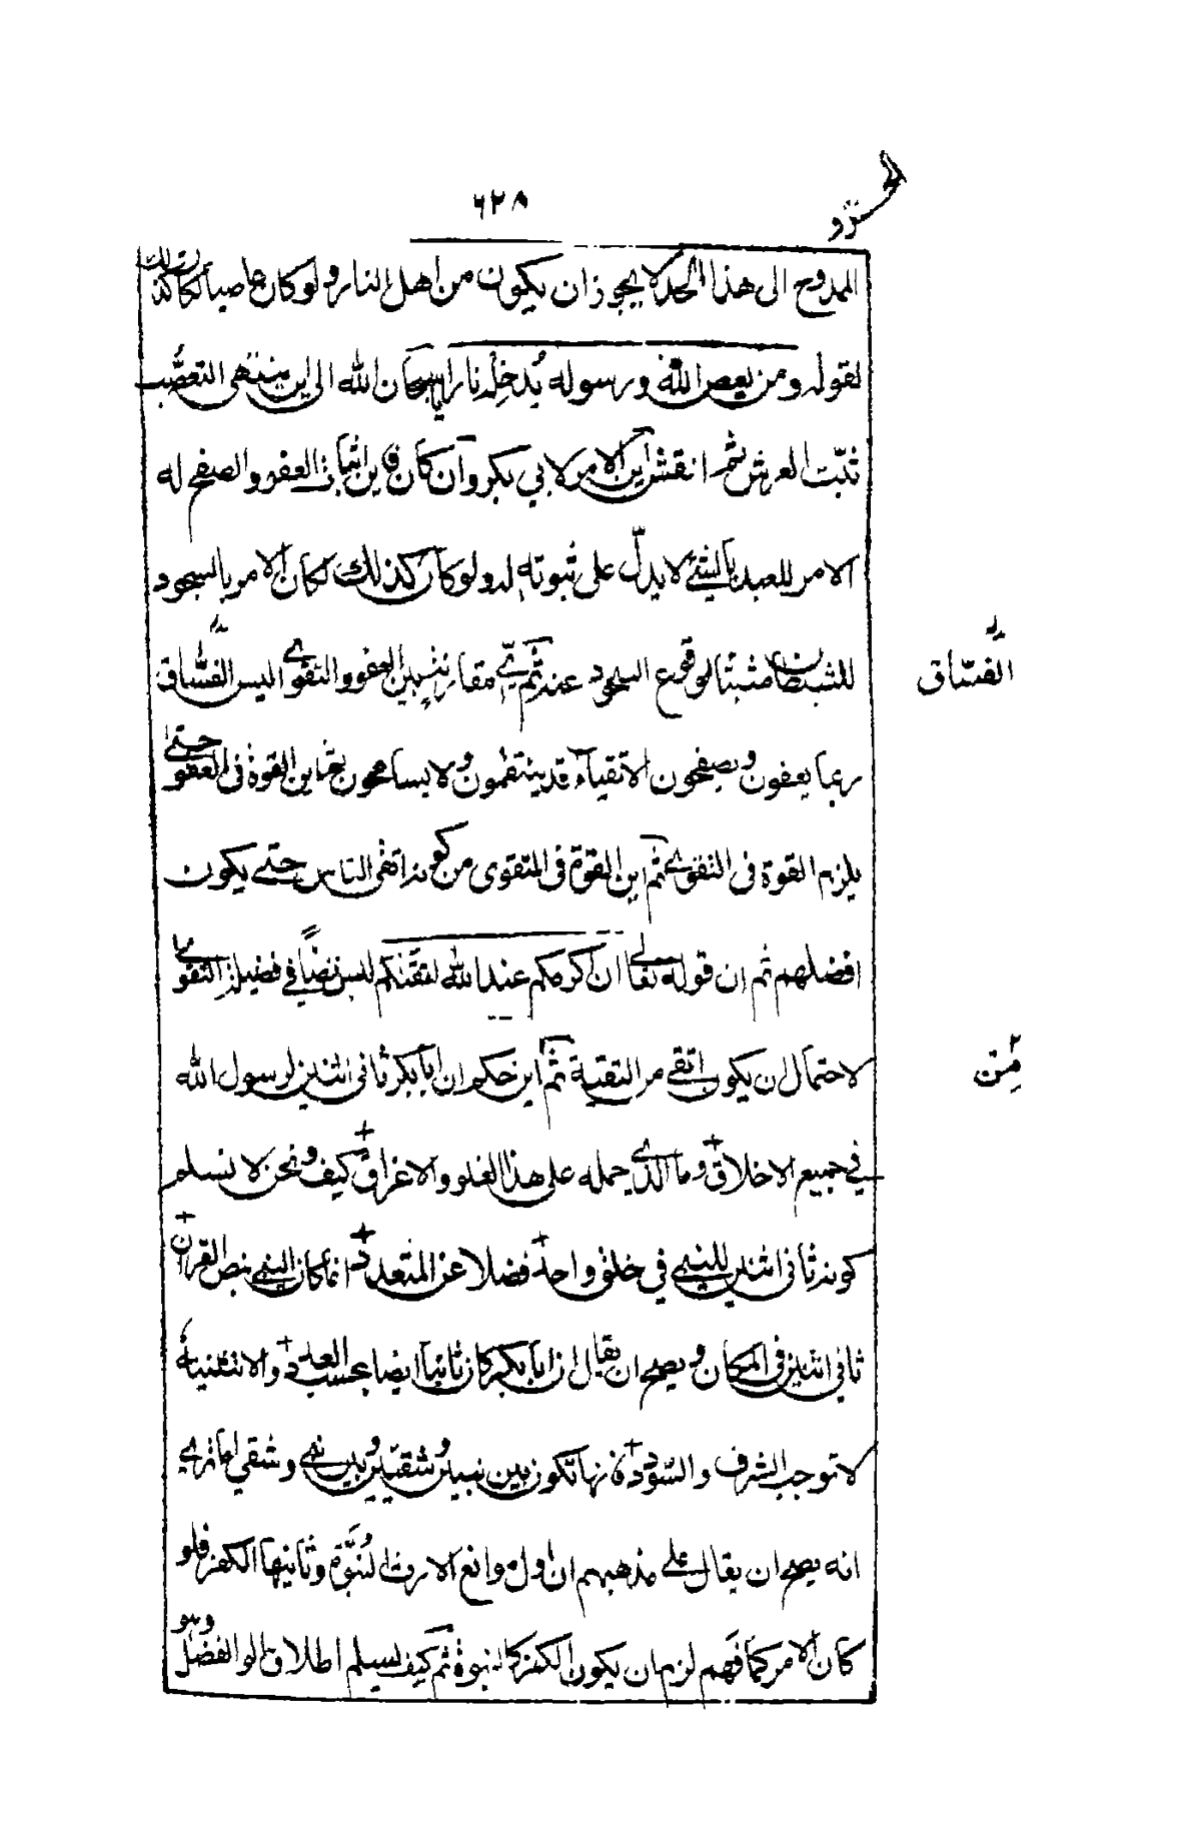 ٦٢٨
الممدوح الى هذا الحد لا يجوز ان يكون من اهل النار ولو كان عاصيا لكان كذلك
لقوله ومن يعص الله ورسوله يُدخِله نارا سبحان الله الى اين ينتهى التعصّب
ثبّت العرش ثم انقش اين الامر لابي بكر وان كان قرين اثبات العفو والصفح له
الامر للعبد بالشيئ لا يدلّ على ثبوته له ولو كان كذلك لكان الامر بالسجود
للشيطان مثبتا لوقوع السجود عنه ثم اىّ مقارنة بين العفو والتقوى اليس الفسّاق
الفسّاق
ربما يعفون ويصفحون والاتقياء قد ينتقمون ولا يسامحون ثم اين القوة فى العفو حتى
يلزم القوة فى التقوى ثم اين القوة فى التقوى من كونه اتقى الناس حتى يكون
افضلهم ثم ان قوله تعالى ان اكرمكم عند الله اتقيكم ليس نصًا في فضيلة التقوى
لاحتمال ان يكون اتقى من التقية ثم اين حكم ان ابا بكر ثانى اثنين لرسول الله
مِن
في جميع الاخلاق وما الذى حمله على هذا الغلو والاغراق كيف ونحن لا نسلم
كونه ثانى اثنين للنبى في خلق واحد فضلا عن المتعدد انما كان النبى بنص القران
ثاني اثنين فى المكان ويصح ان يقال ان ابا بكر كان ثانيا ايضا بحسب العدد والاثنينية
لا توجب الشرف والسّودد فانها تكون بين نبيين وشقيّين وبين نبى وشقي اما ترى
انه يصح ان يقال على مذهبهم ان اول موانع الارث النُبُوّة وثانيها الكفر فلو
كان الامر كما فهم لزم ان يكون الكفر كالنبوة ثم كيف نسلم اطلاق اولو الفضل وهو